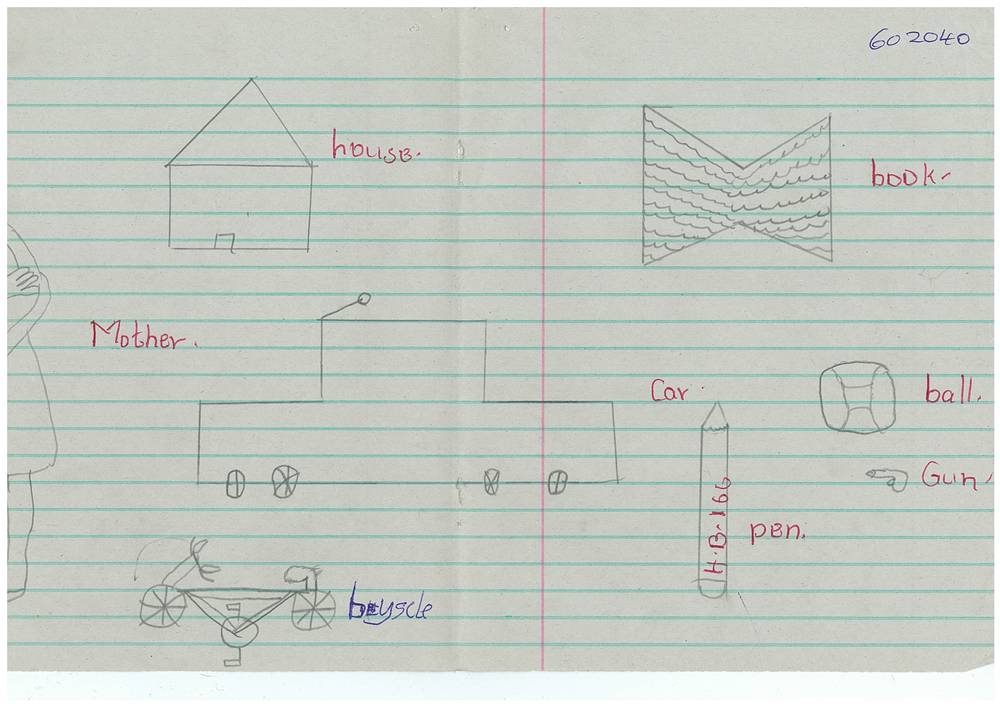 602040
house.
book-
Mother.
Car.
ball.
Gun.
H.B.166
pen.
beyscle